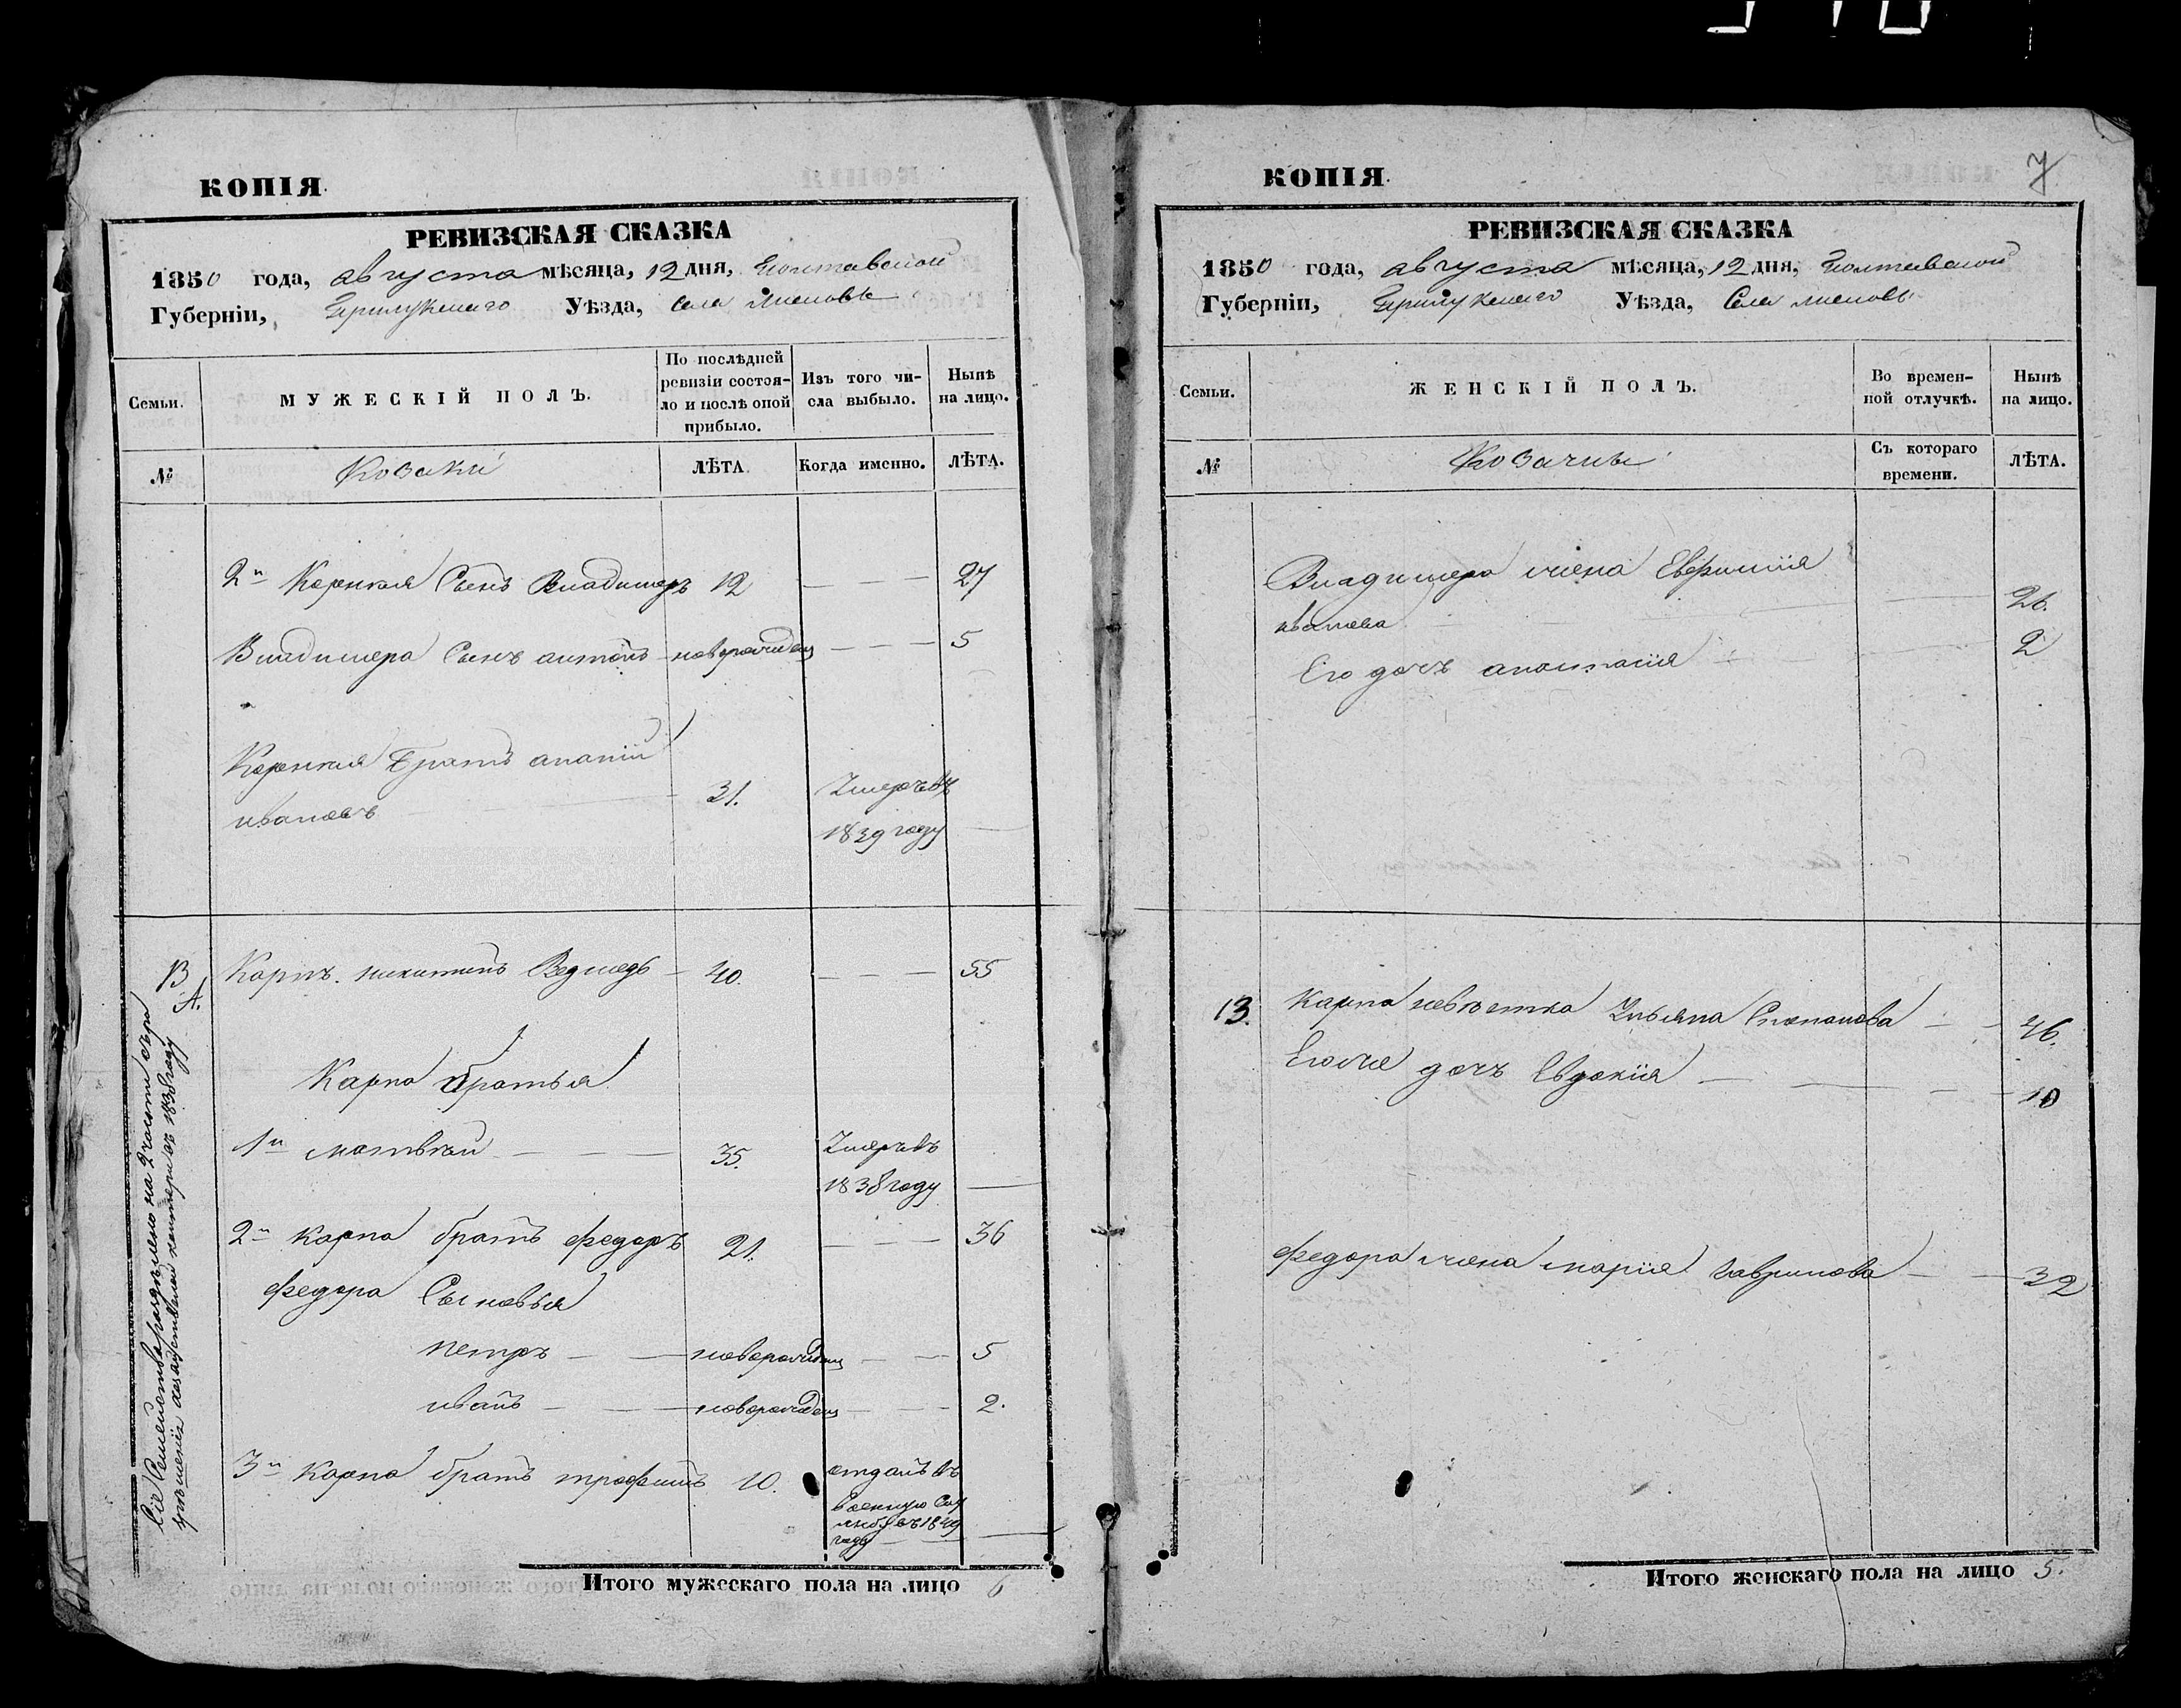 КОПІЯ.
РЕВИЗСКАЯ СКАЗКА
1850 года, августа мѣсяца, 12 дня, Полтавской
Губерніи, Прилуцкаго Уѣзда, Села
Семьи.
МУЖЕСКІЙ ПОЛЪ.
По послѣдней
ревизіи состоя-
ло и послѣ оной
прибыло.
Изъ того чи-
сла выбыло.
Нынѣ
на лицо.
№
Козаки
ЛѢТА.
Когда именно.
ЛѢТА.
2й Сынъ Владимеръ 12 — — — 27
Владимера Сынъ антонъ новорожден — — — 5
братъ ананій
ивановъ 31. Умеръ въ
1839 году —
13
А.
Карпъ никитинъ Ведмедь — 40. — — — 55
Карпа братья
1й матвѣй — — — 35. Умеръ въ
1838 году —
2й карпа братъ федоръ 21. — — — 36
федора Сыновья
петръ — — новорожден — — 5
иванъ — — новорожден — — 2.
3й карпа братъ трофимъ 10. отданъ въ
военную
въ 1849
году —
Сіе Семейство раздѣлено на 2 части съ
въ 1838 году
Итого мужескаго пола на лицо 6
7
КОПІЯ.
РЕВИЗСКАЯ СКАЗКА
1850 года, августа мѣсяца, 12 дня, Полтавской
Губерніи, Прилуцкаго Уѣзда, Села
Семьи.
ЖЕНСКІЙ ПОЛЪ.
Во времен-
ной отлучкѣ.
Нынѣ
на лицо.
№
Козачки
Съ котораго
времени.
ЛѢТА.
Владимера жена Евфимія
иванова 26.
Его дочь анастасія 2
13. Карпа невѣстка Ульяна Степанова — — 46.
Его же дочь Евдокія — — — 10
федора жена марія гаврилова — — 32
Итого женскаго пола на лицо 5.